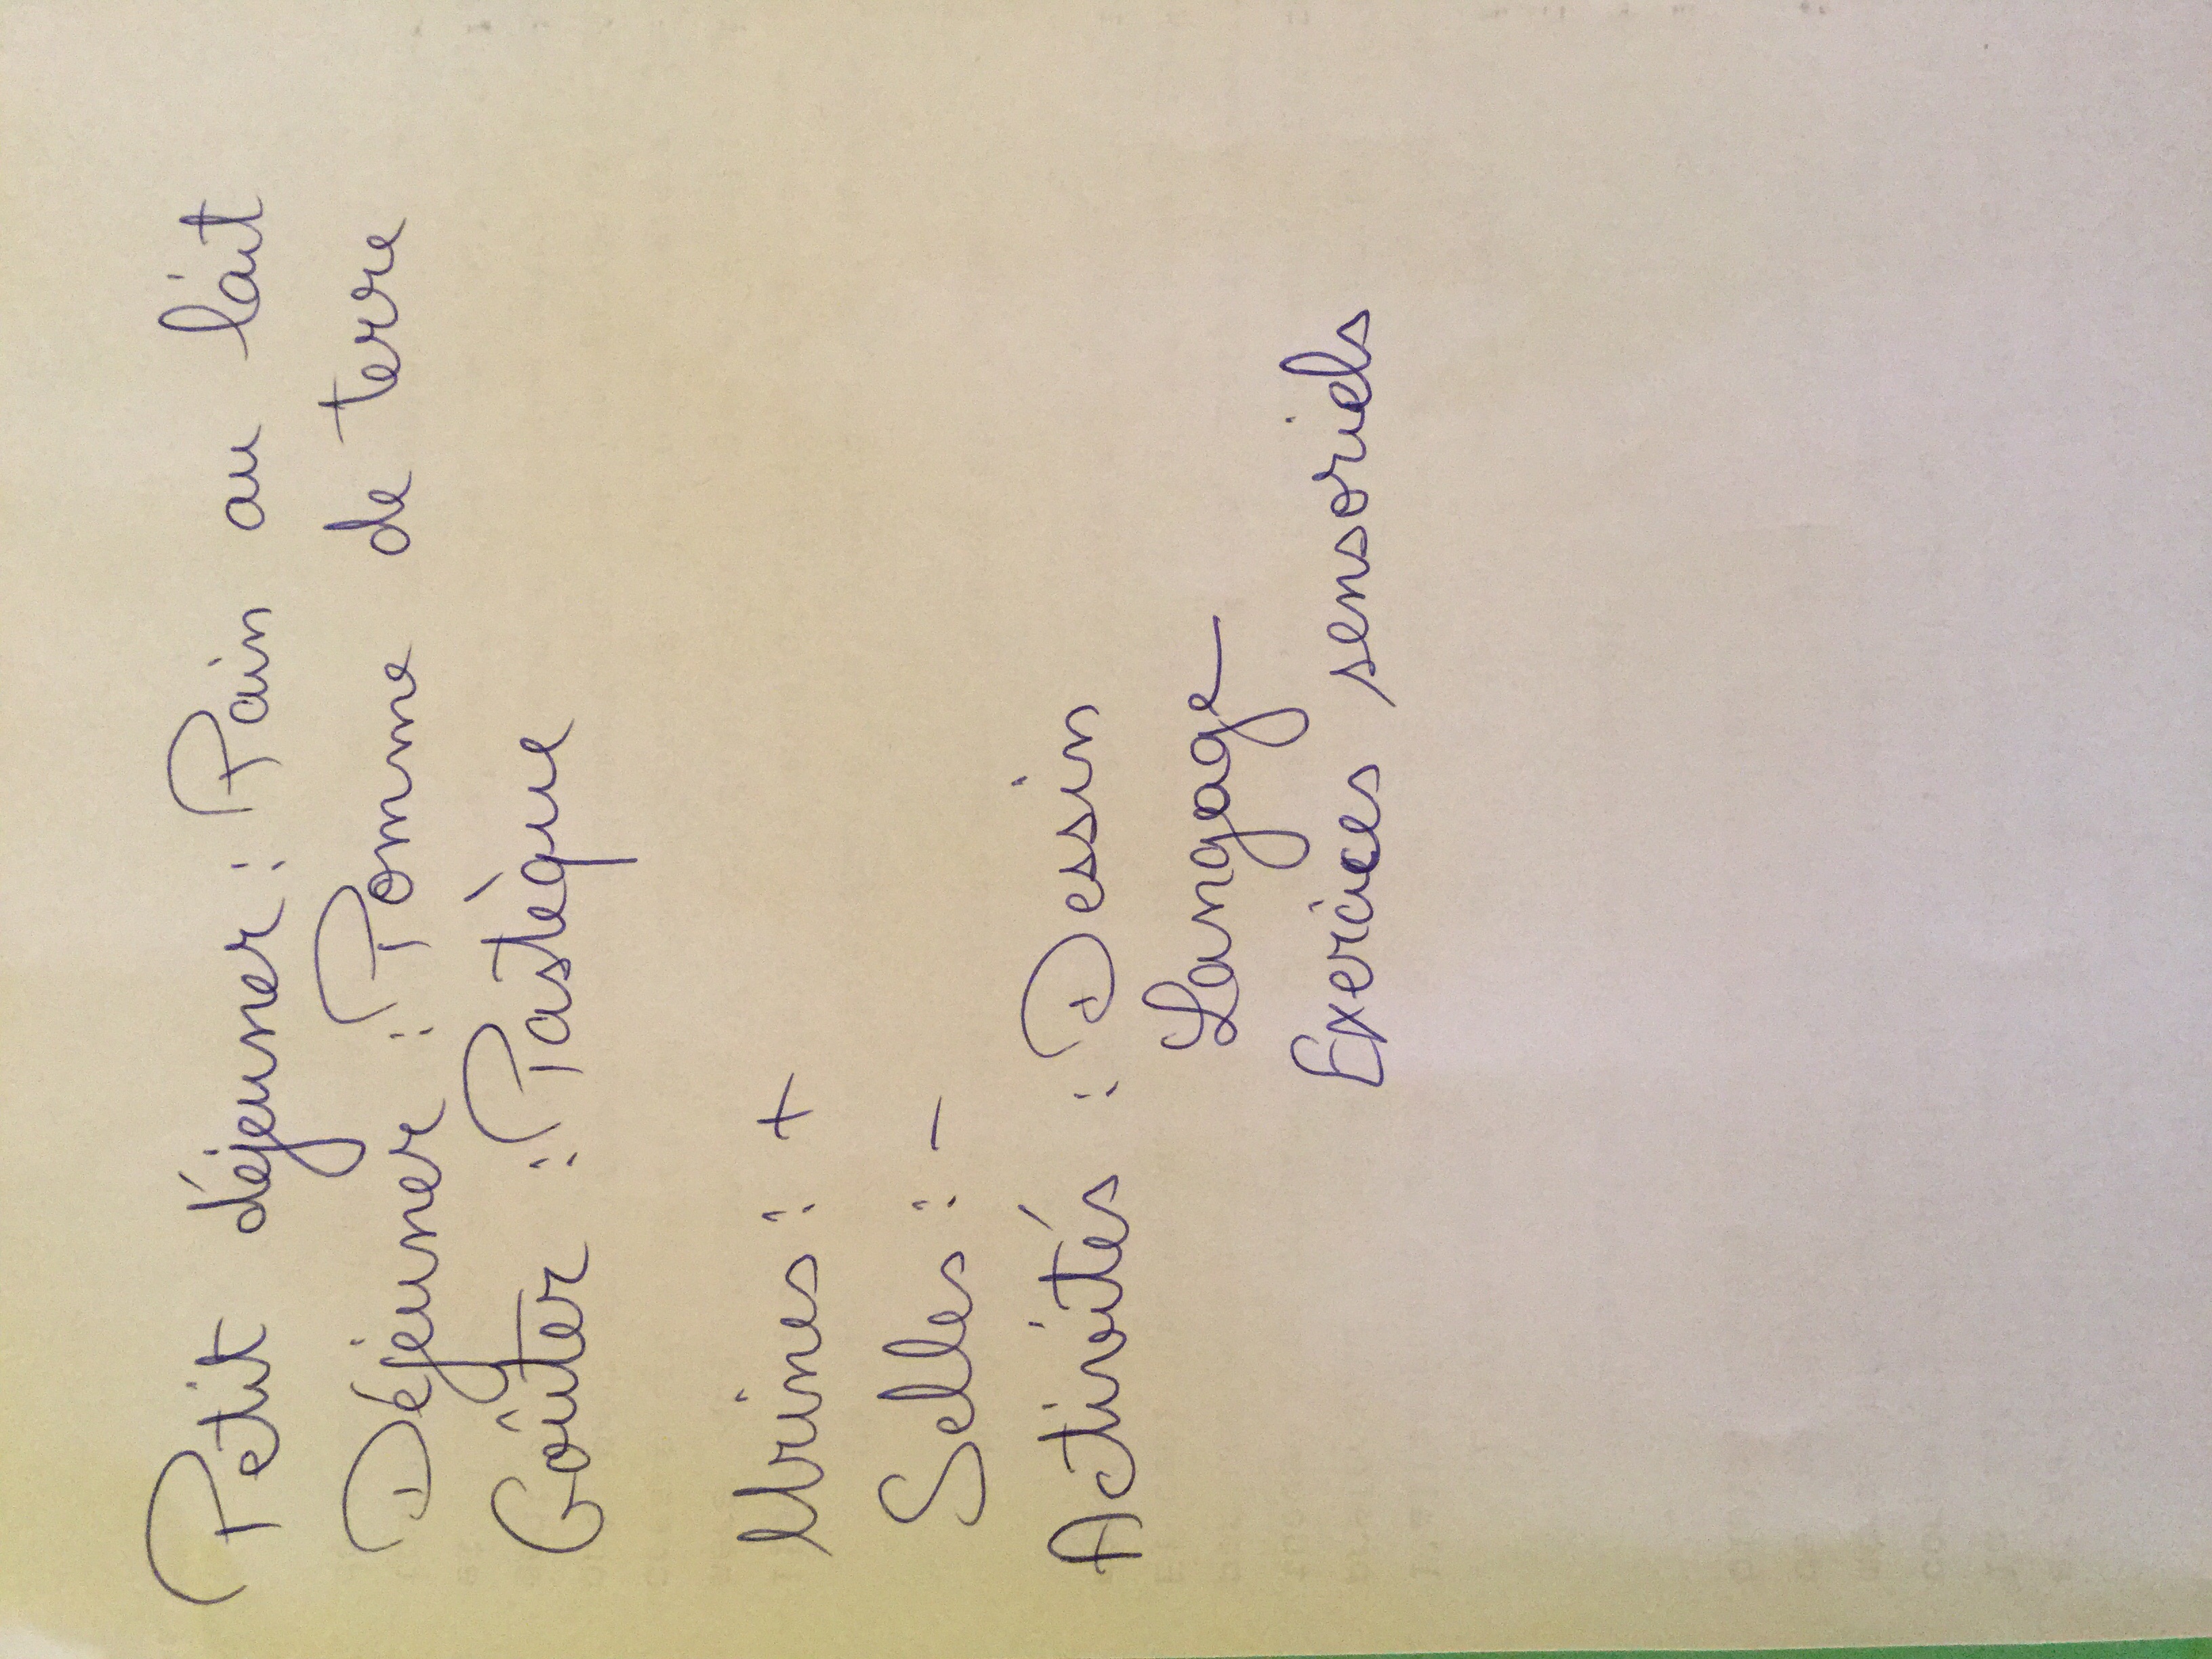 Petit déjeuner : Pain au lait
Déjeuner : Pomme de terre
Goûter : Pastèque
Urines : +
Selles : -
Activités : Dessin
Langage
Exercices sensoriels